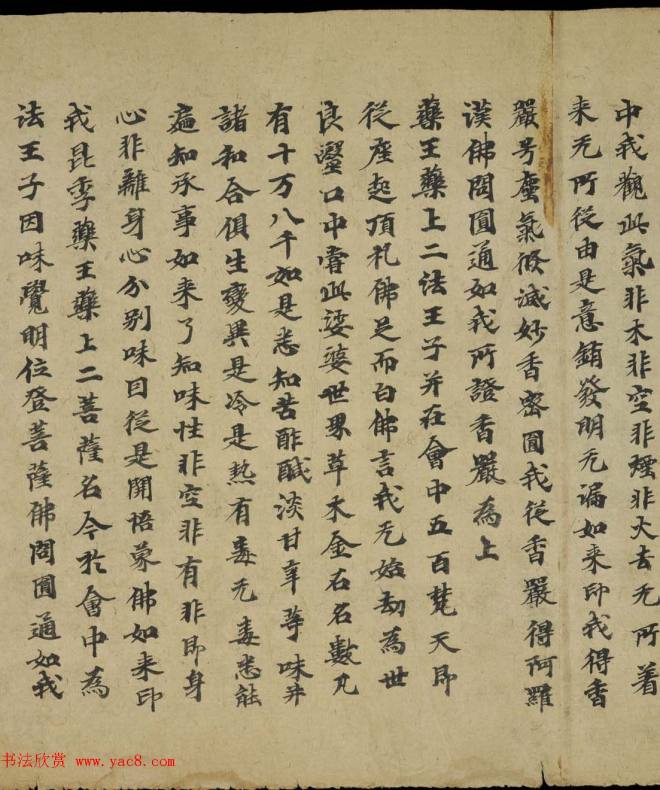 中我觀此氣非木非空非煙非火去无所着
来无所從由是意銷發明无漏如来印我得香
嚴号塵氣倐滅妙香密圓我從香嚴得阿羅
漢佛問圓通如我所證香嚴為上
藥王藥上二法王子并在會中五百梵天即
從座起頂礼佛足而白佛言我无始劫為世
良毉口中嘗此娑婆世界草木金石名數凡
有十万八千如是悉知苦酢醎淡甘辛等味并
諸和合俱生變異是冷是熱有毒无毒悉能
遍知承事如来了知味性非空非有非即身
心非離身心分别味因從是開悟蒙佛如来印
我昆季藥王藥上二菩薩名今於會中為
法王子因味覺明位登菩薩佛問圓通如我
书法欣赏 www.yac8.com